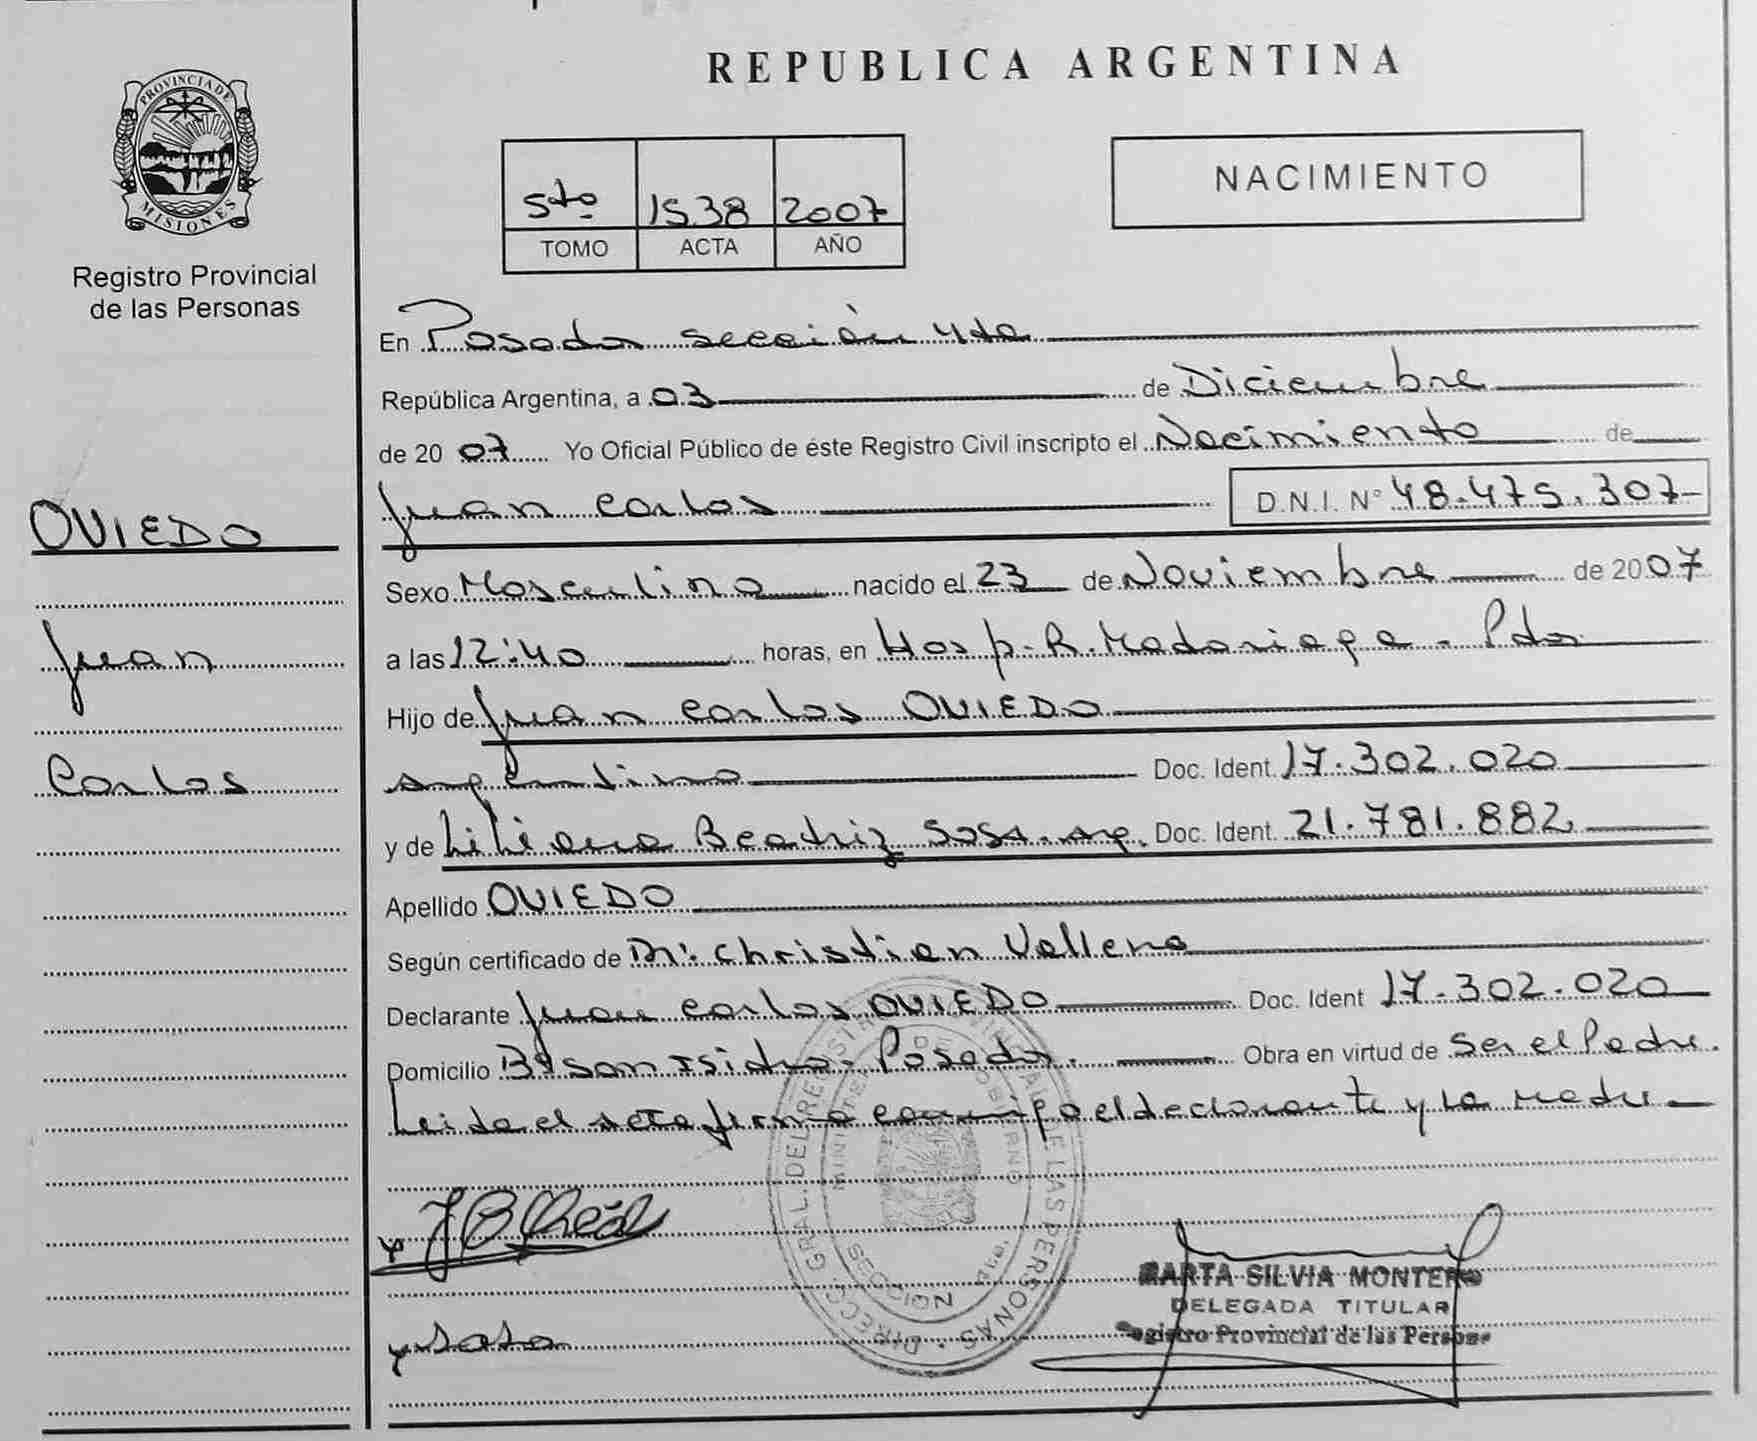 REPUBLICA ARGENTINA
PROVINCIA DE
MISIONES
Registro Provincial
de las Personas
5to 1538 2007
TOMO ACTA AÑO
NACIMIENTO
OVIEDO
Juan
Carlos
En Posadas sección 4ta
República Argentina, a 03 de Diciembre
de 2007 Yo Oficial Público de éste Registro Civil inscripto el Nacimiento de
Juan Carlos D.N.I. Nº 48.475.307-
Sexo Masculino nacido el 23 de Noviembre de 2007
a las 12:40 horas, en Hosp. R. Madariaga - Pdas
Hijo de Juan Carlos OVIEDO
argentino Doc. Ident. 17.302.020
y de Liliana Beatriz SOSA. Arg. Doc. Ident. 21.781.882
Apellido OVIEDO
Según certificado de Dr. Christian Vallena
Declarante Juan Carlos OVIEDO Doc. Ident 17.302.020
Domicilio Bº San Isidro - Posadas. Obra en virtud de Ser el Padre.
Leida el acta firma conmigo el declarante y la madre
DIRECC. GRAL. DEL REGISTRO PROVINCIAL DE LAS PERSONAS
MINISTERIO DE GOBIERNO
SECCION 4ta.
Sosa
MARTA SILVIA MONTERO
DELEGADA TITULAR
Registro Provincial de las Persona